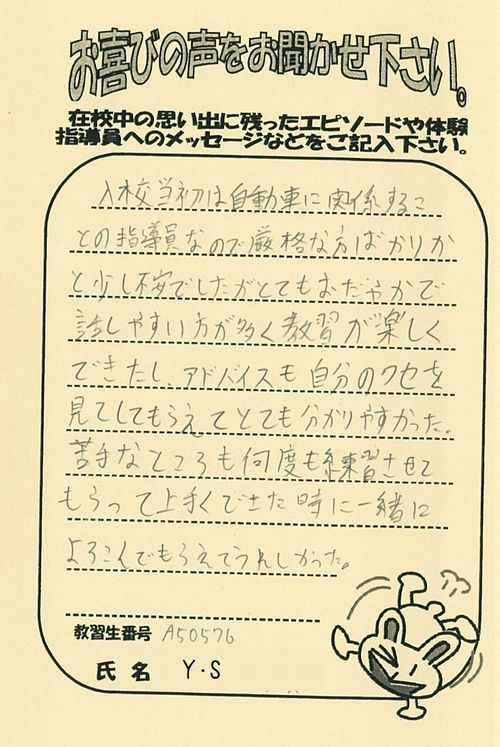 お喜びの声をお聞かせ下さい。
在校中の思い出に残ったエピソードや体験
指導員へのメッセージなどをご記入下さい。
入校当初は自動車に関係するこ
との指導員なので厳格な方ばかりか
と少し不安でしたがとてもおだやかで
話しやすい方が多く教習が楽しく
できたし、アドバイスも自分のクセを
見てしてもらえてとても分かりやすかった。
苦手なところも何度も練習させて
もらって上手くできた時に一緒に
よろこんでもらえてうれしかった。
教習生番号 A50576
氏名 Y.S